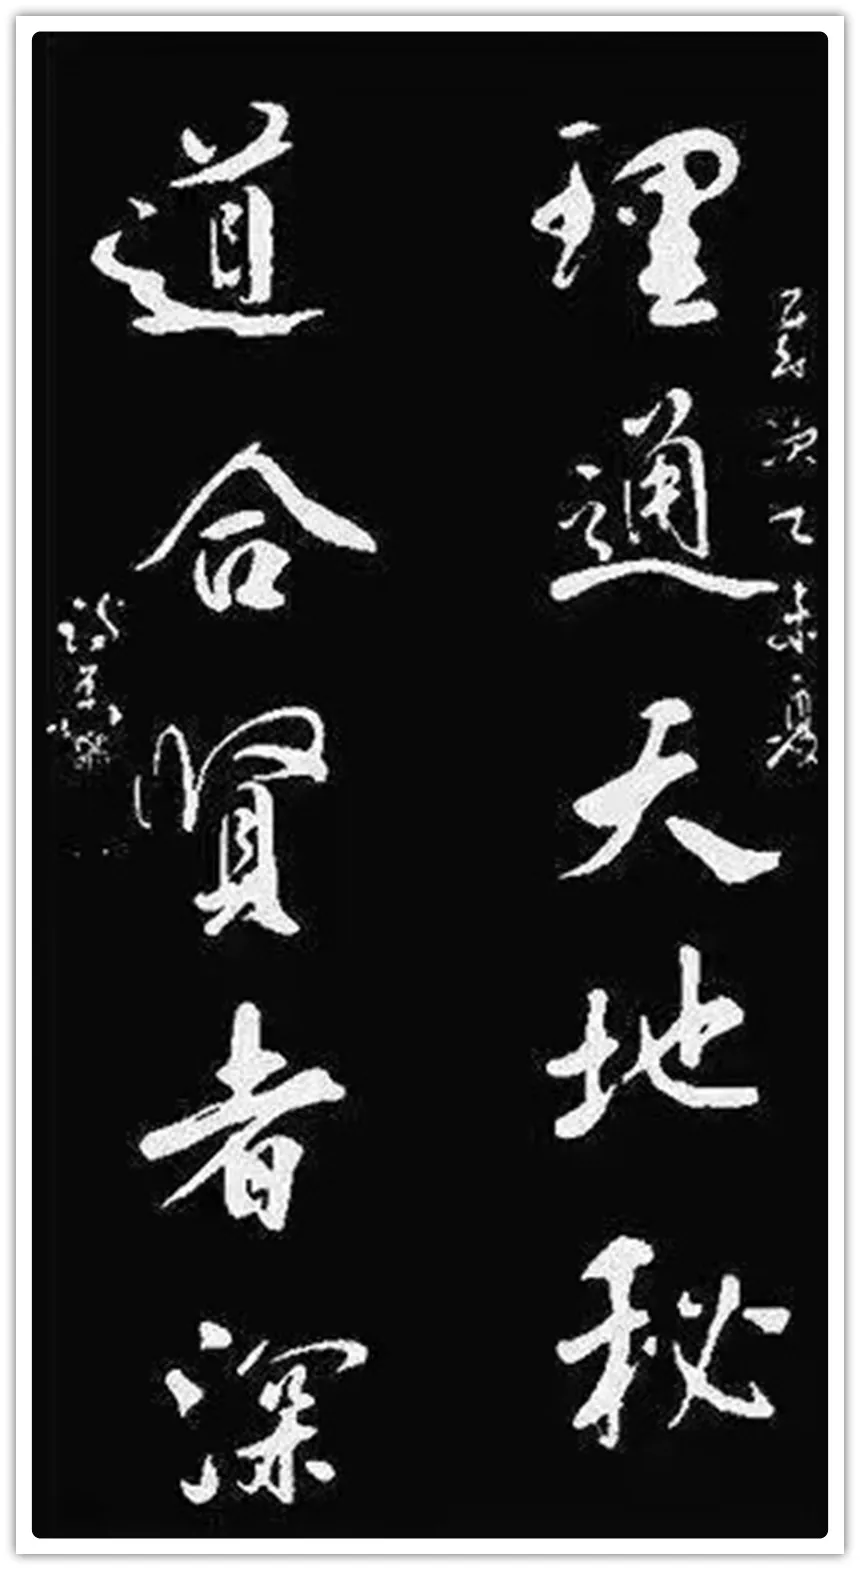 理通天地秘
道合贤者深